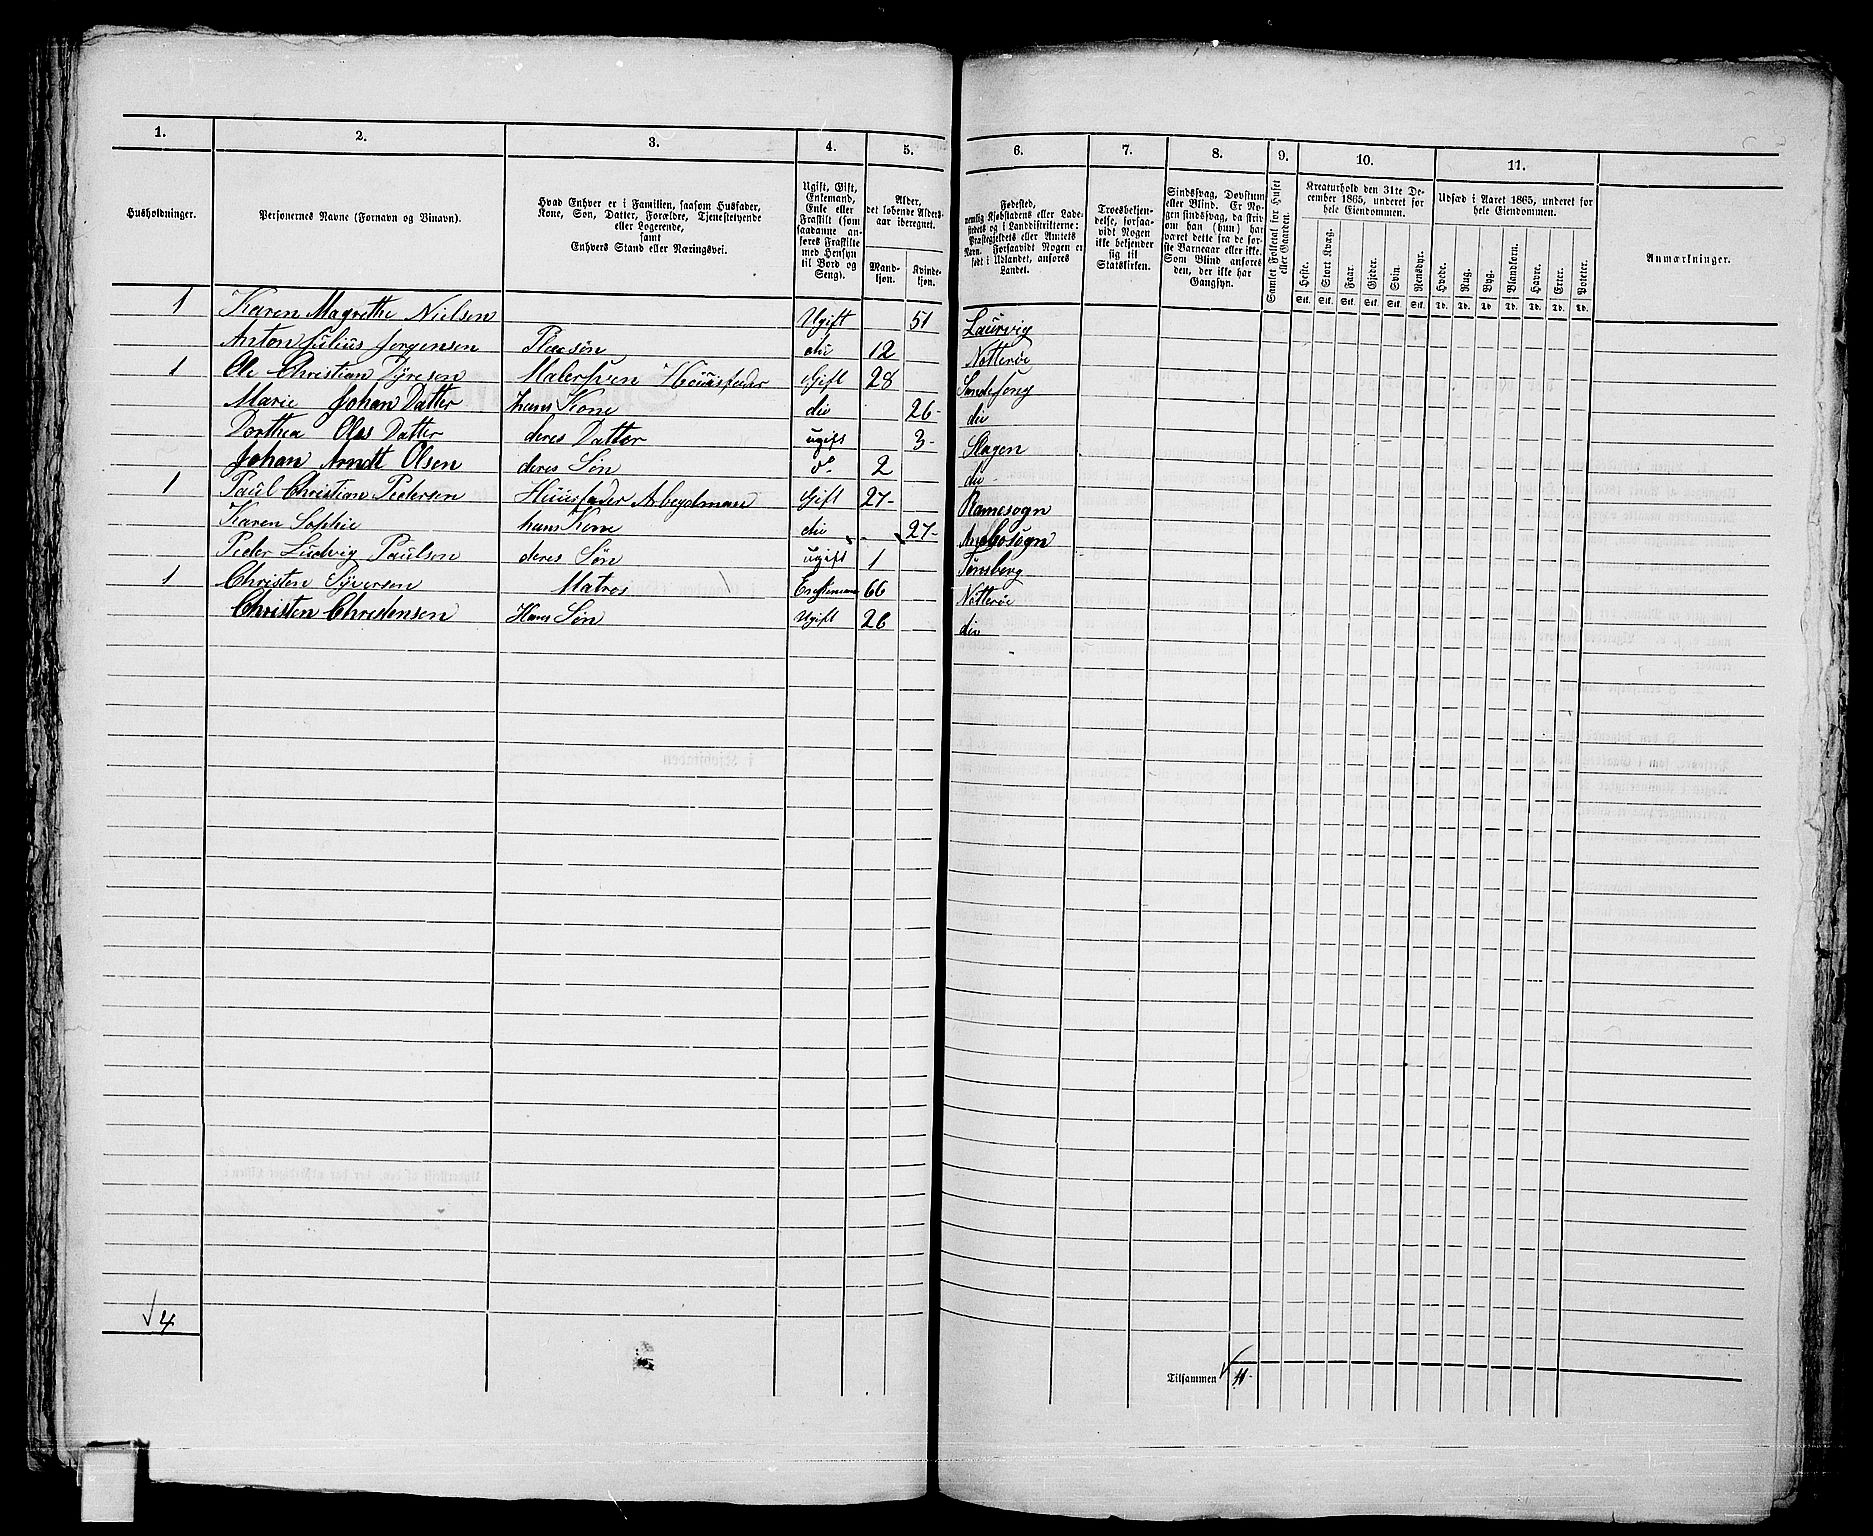 1. 2. 3. 4. 5. 6. 7. 8. 9. 10. 11.
Husholdninger.
Personernes Navne (Fornavn og Binavn).
Hvad Enhver er i Familien, saasom Husfader,
Kone, Søn, Datter, Forældre, Tjenestetyende
eller Logerende,
samt
Enhvers Stand eller Næringsvei.
Ugift, Gift,
Enkemand,
Enke eller
Fraskilt (som
saadanne an-
føres Fraskilte
med Hensyn
til Bord og
Seng).
Alder,
det løbende Alders-
aar iberegnet.
Mand-
kjøn.
Kvinde-
kjøn.
Fødested,
nemlig Kjøbstadens eller Lade-
stedets og i Landdistrikterne:
Præstegjeldets eller Amtets
Navn. Forsaavidt Nogen er
født i Udlandet, anføres
Landet.
Troesbekjen-
delse, forsaa-
vidt Nogen
ikke bekjender
sig til
Statskirken.
Sindssvag, Døvstum
eller Blind. Er No-
gen sindssvag, da skriv
om han (hun) har
været dette fra de før-
ste Barneaar eller ikke.
Som Blind anføres
den, der ikke har
Gangsyn.
Samlet Folketal for Huset
eller Gaarden.
Kreaturhold den 31te De-
cember 1865, underet for
hele Eiendommen.
Heste. Stort Kvæg. Faar. Gjeder. Svin. Rensdyr.
Stk. Stk. Stk. Stk. Stk. Stk.
Udsæd i Aaret 1865, underet for
hele Eiendommen.
Hvede. Rug. Byg. Blandkorn. Havre. Erter. Poteter.
Td. Td. Td. Td. Td. Td. Td.
Anmærkninger.
1 Karen Magrethe Nielsen Ugift 51 Laurvig
Anton Julius Jorgensen Pleiesøn die 12 Nøtterøe
1 Ole Christian Dyresen Malersven Huusfader Gift 28 Sandefong
Marie Johan Datter hans Kone die 26 die
Dorthea Oles Datter deres Datter ugift 3 Slagen
Johan Arndt Olsen deres Søn do 2 die
1 Paul Christian Pedersen Huusfader Arbeydsmand Gift 27 Ramesogn
Karen Sophie hans Kone die 27
Peder Ludvig Paulsen deres Søn ugift 1 Tønsberg
1 Christen Syversen Matros Enkemand 66 Nøtterøe
Christen Christensen Hans Søn Ugift 26 die
4
Tilsammen 11